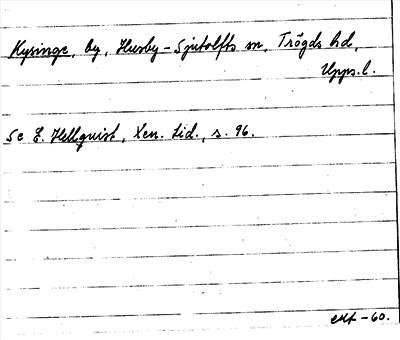 Kysinge, by, Husby-Sjutolfts sn, Trögds hd,
Upps.l.
Se E. Hellquist, Xen. Lid., s. 96.
-60.